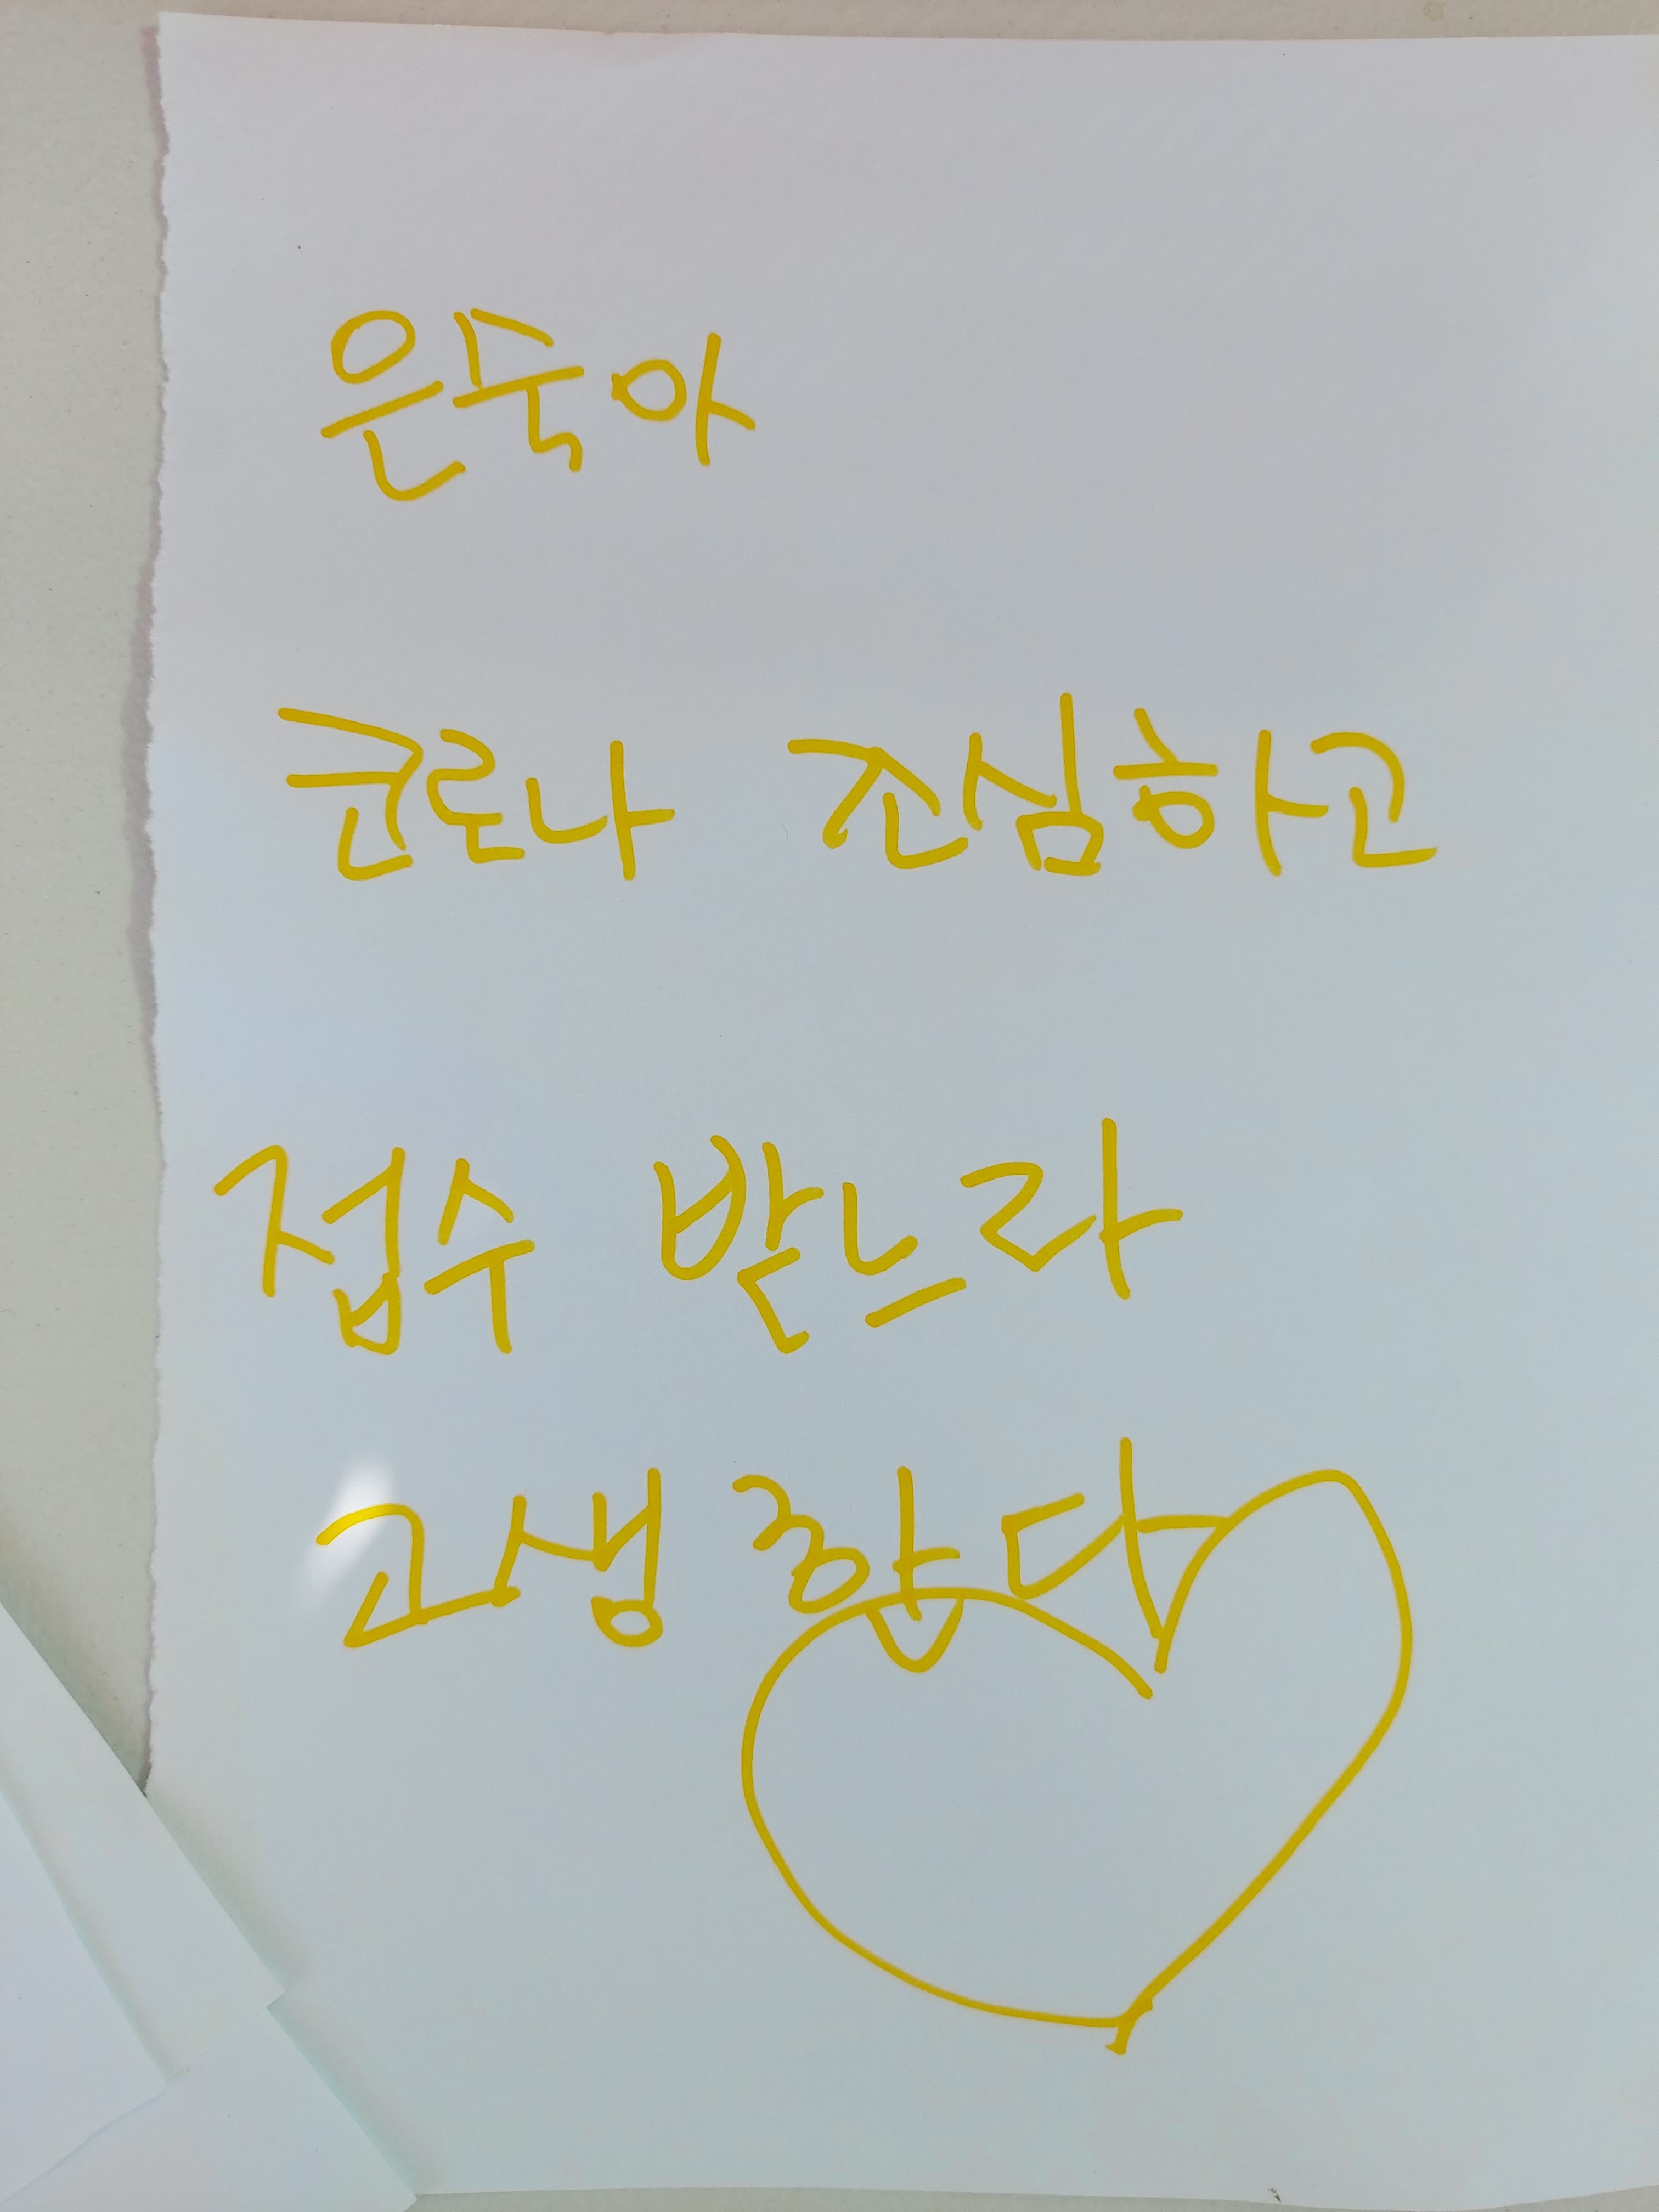 은숙아
코로나 조심하고
접수 받느라
고생 많다